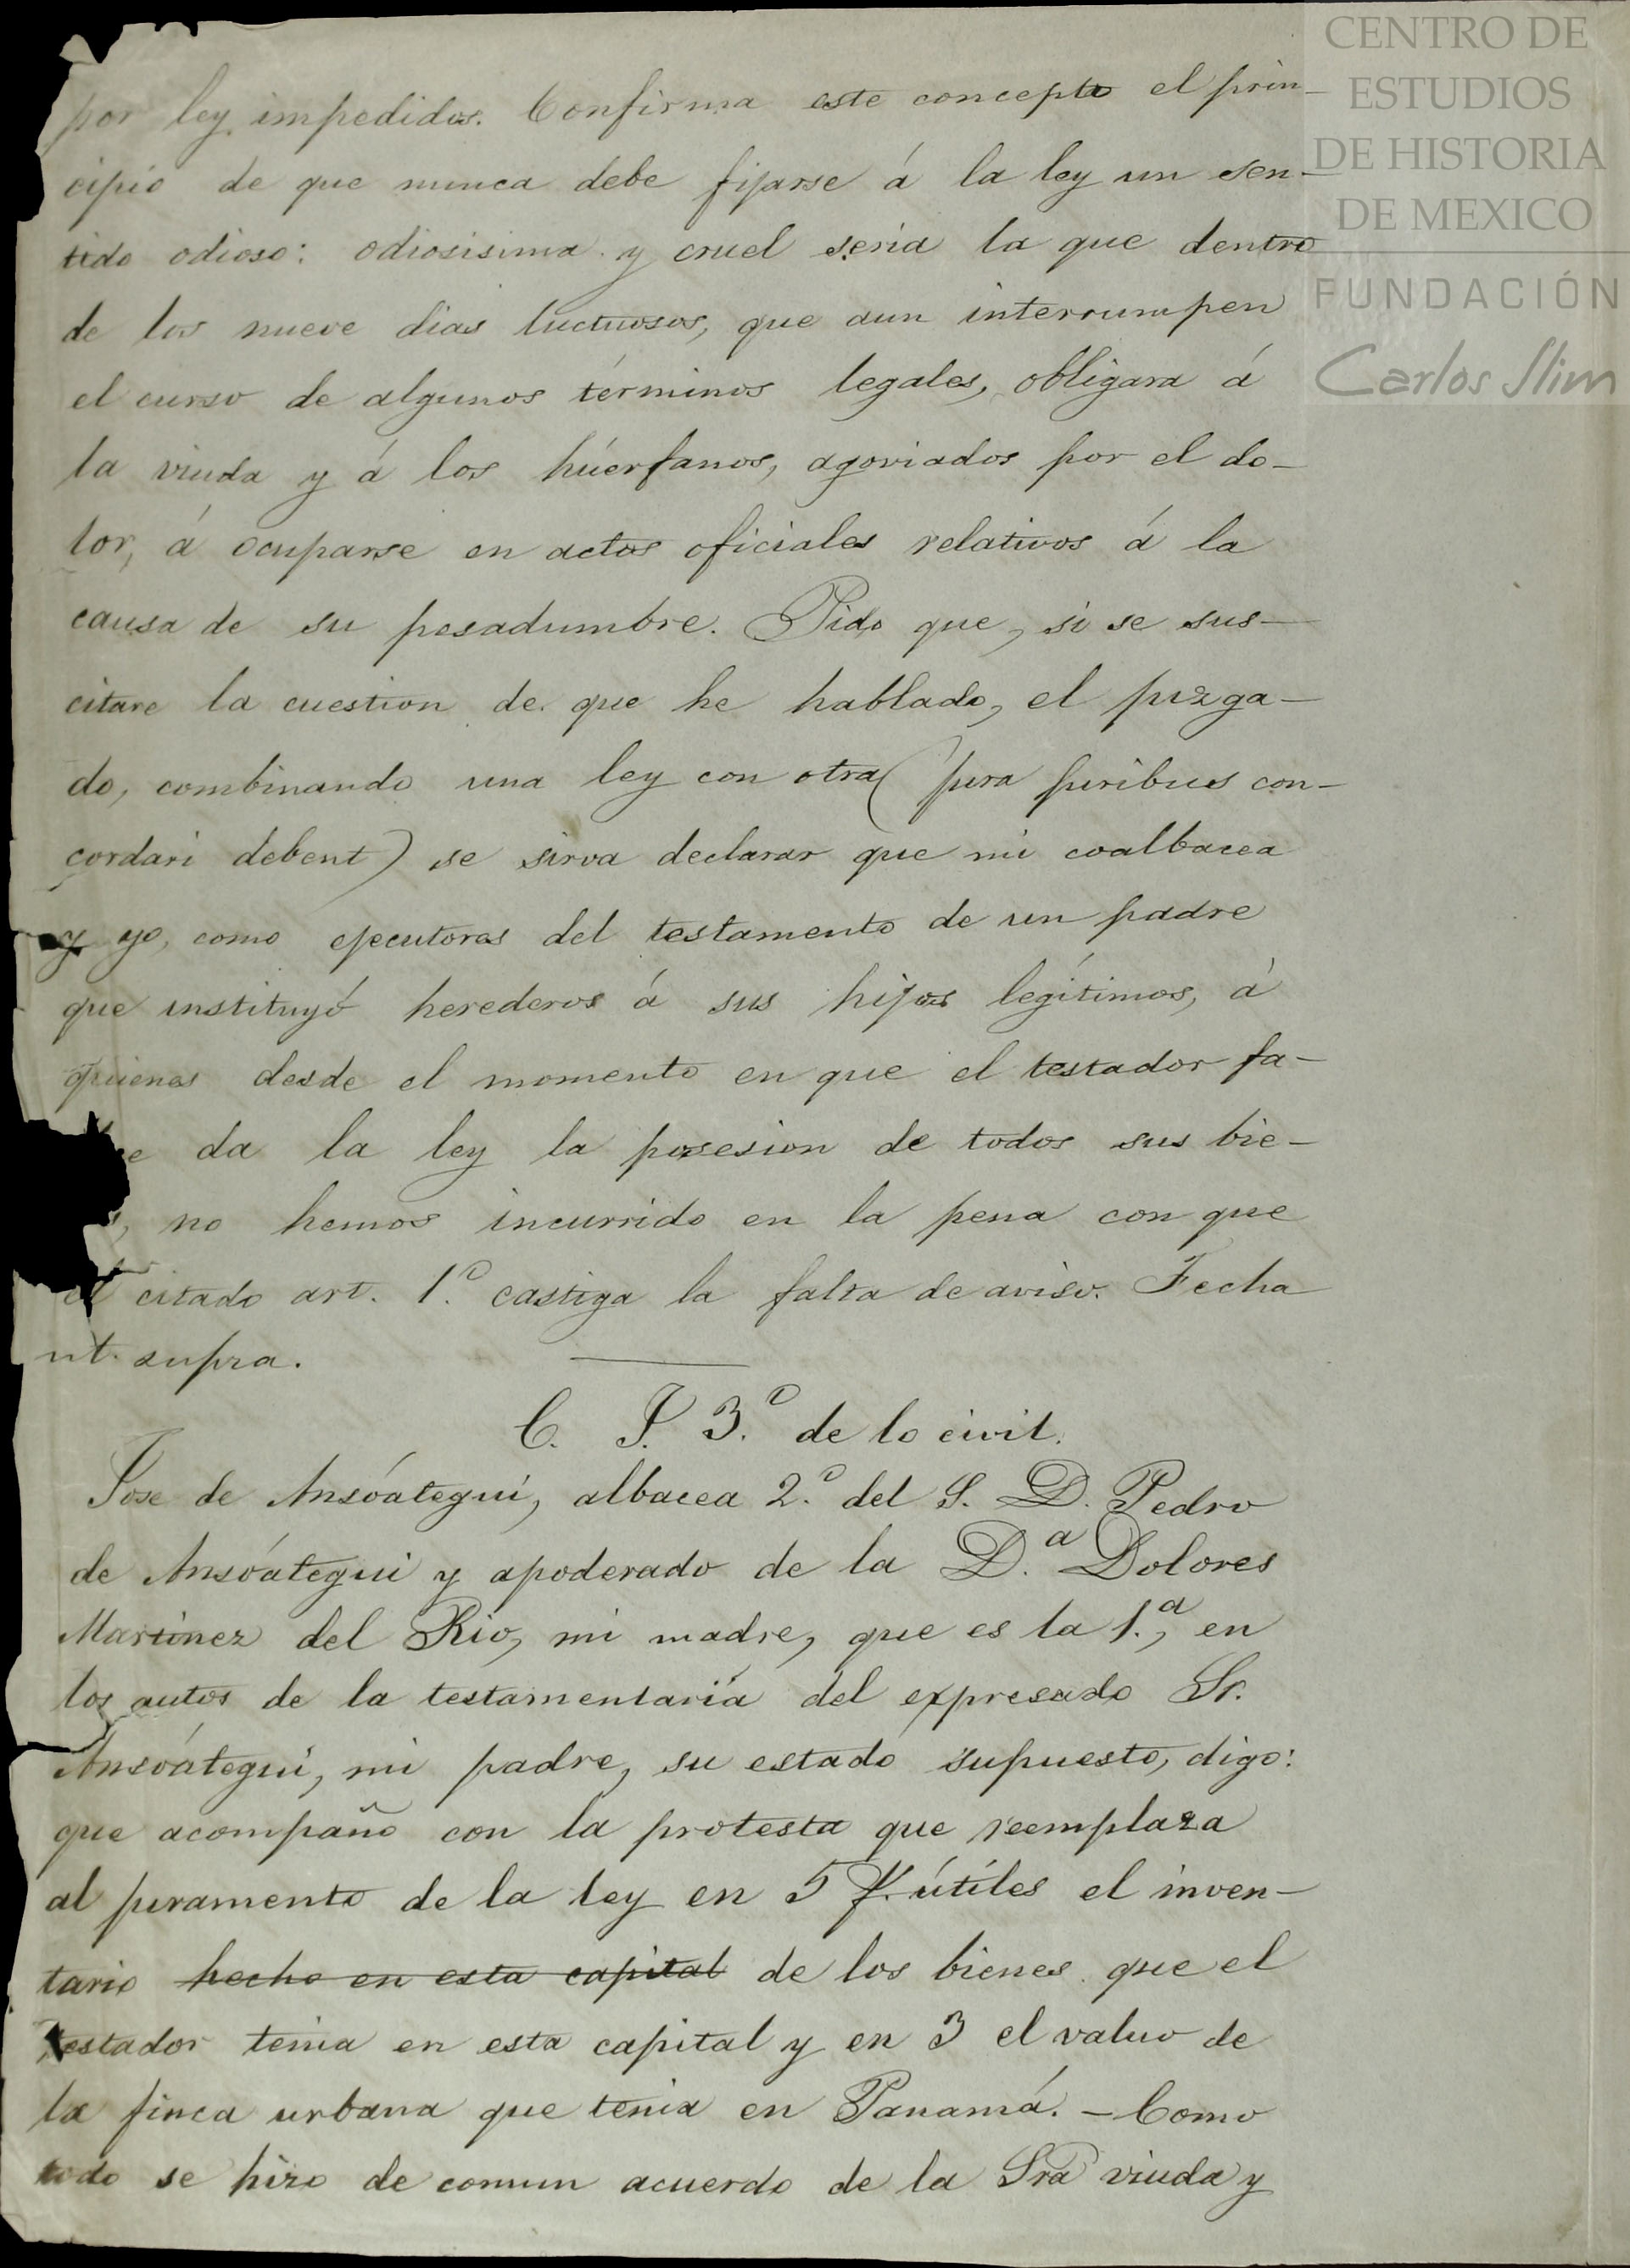 por ley impedidos. Confirma este concepto el prin-
cipio de que nunca debe fijarse á la ley un sen-
tido odioso: odiosisima y cruel seria la que dentro
de los nueve dias luctuosos, que aun interrumpen
el curso de algunos términos legales, obligara á
la viuda y á los húerfanos, agoviados por el do-
lor, á ocuparse en actos oficiales relativos á la
causa de su pesadumbre. Pido que, si se sus-
citare la cuestion de que he hablado, el juzga-
do, combinando una ley con otra (jura juribus con-
cordari debent) se sirva declarar que mi coalbacea
y yo, como ejecutores del testamento de un padre
que instituyó herederos á sus hijos legítimos, á
quienes desde el momento en que el testador fa-
ce da la ley la posesion de todos sus bie-
s, no hemos incurrido en la pena con que
el citado art. 1.º castiga la falta de aviso. Fecha
ut supra.
C. J. 3.º de lo civil.
Jose de Ansóategui, albacea 2.º del S. D. Pedro
de Ansóategui y apoderado de la D.ª Dolores
Martinez del Rio, mi madre, que es la 1.ª, en
los autos de la testamentaría del expresado Sr.
Ansóategui, mi padre, su estado supuesto, digo:
que acompaño con la protesta que reemplaza
al juramento de la ley en 5 f. útiles el inven-
tario hecho en esta capital de los bienes que el
testador tenia en esta capital y en 3 el valuo de
la finca urbana que tenia en Panamá. - Como
todo se hizo de comun acuerdo de la Sra viuda y
CENTRO DE
ESTUDIOS
DE HISTORIA
DE MEXICO
FUNDACIÓN
Carlos Slim